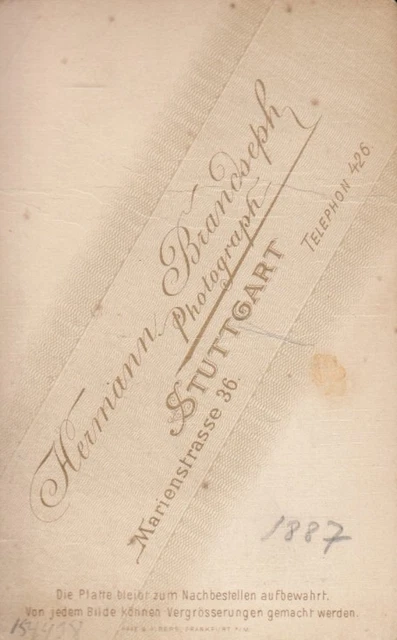 Hermann Brandseph
Photograph
STUTTGART
Marienstrasse 36.
TELEPHON 426
1887
Die Platte bleibt zum Nachbestellen aufbewahrt.
Von jedem Bilde können Vergrösserungen gemacht werden.
FRANKFURT A/M.